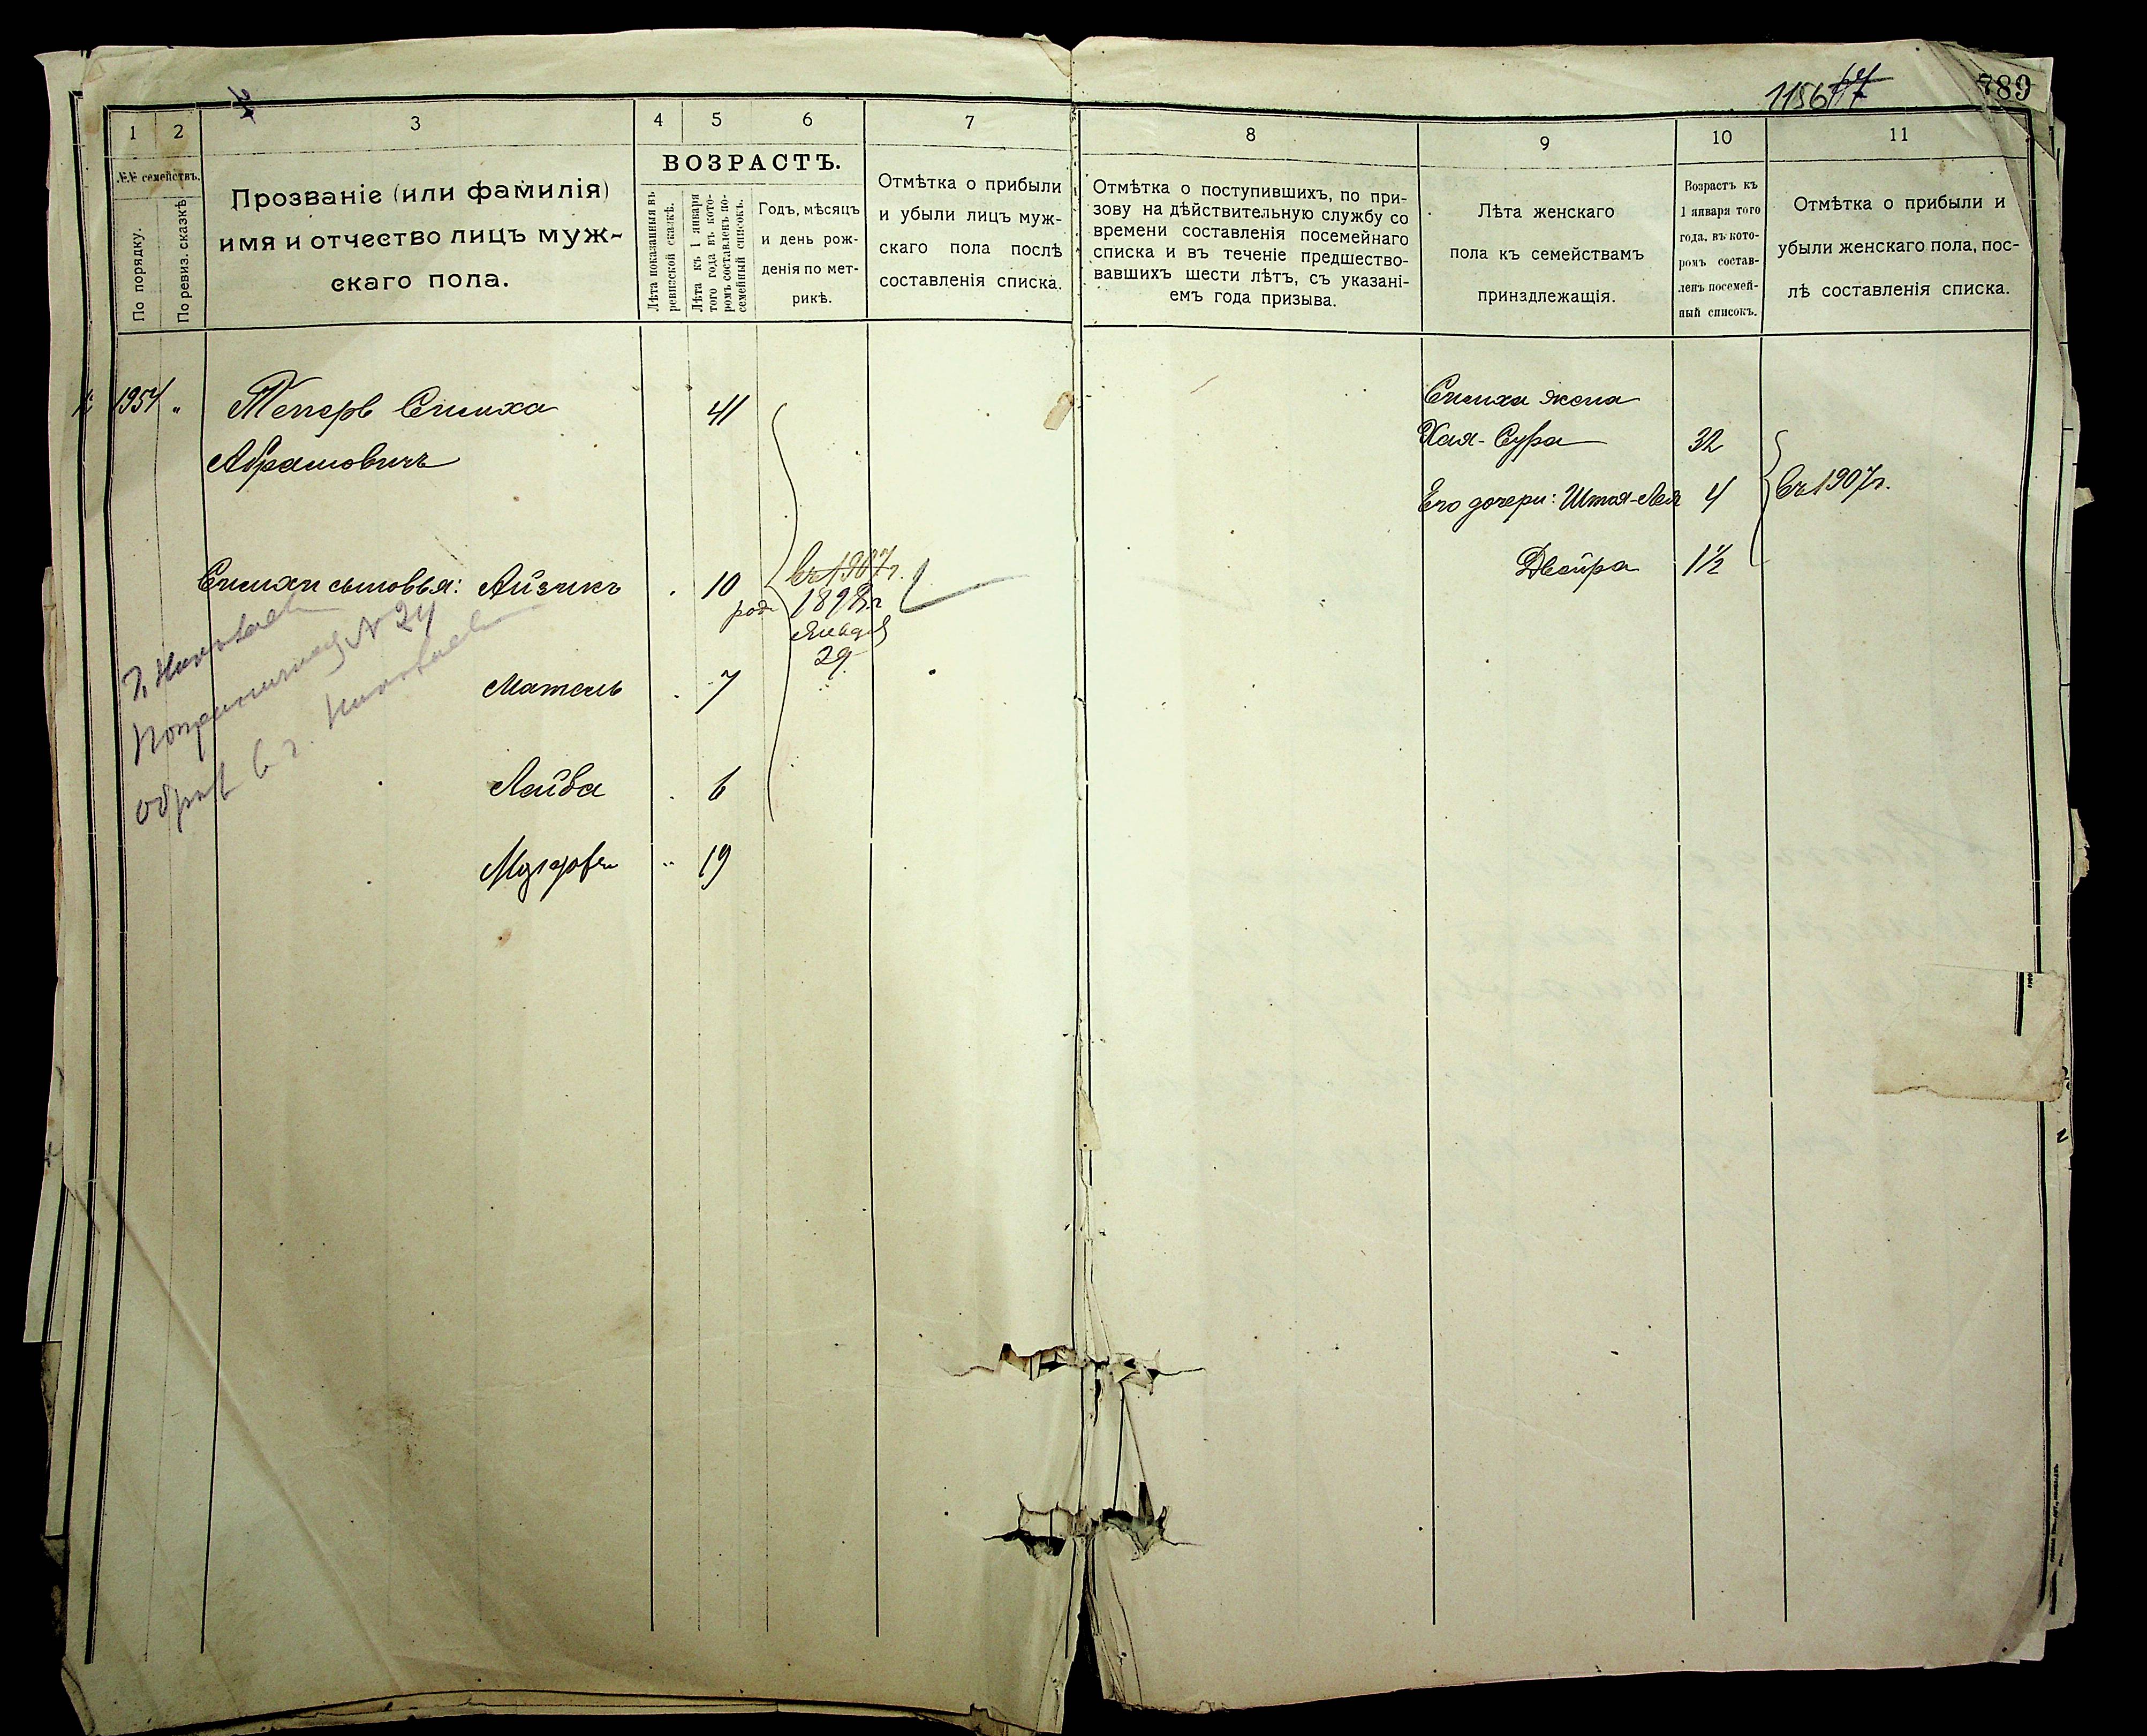 789
1 2 3 4 5 6 7 8 9 10 11
№№ семействъ.
По порядку.
По ревиз. сказкѣ
Прозваніе (или фамилія)
имя и отчество лицъ муж-
скаго пола.
ВОЗРАСТЪ.
Лѣта показанныя въ
ревизской сказкѣ.
Лѣта къ 1 января
того года въ кото-
ромъ составленъ по-
семейный списокъ.
Годъ, мѣсяцъ
и день рож-
денія по мет-
рикѣ.
Отмѣтка о прибыли
и убыли лицъ муж-
скаго пола послѣ
составленія списка.
Отмѣтка о поступившихъ, по при-
зову на дѣйствительную службу со
времени составленія посемейнаго
списка и въ теченіе предшество-
вавшихъ шести лѣтъ, съ указані-
емъ года призыва.
Лѣта женскаго
пола къ семействамъ
принадлежащія.
Возрастъ къ
1 января того
года, въ кото-
ромъ состав-
ленъ посемей-
ный списокъ.
Отмѣтка о прибыли и
убыли женскаго пола, пос-
лѣ составленія списка.
1954 " Теперъ Симха 41
Абрамовичъ
Симхи сыновья: Айзикъ 10
въ 1907 г.
род. 1898 г.
Января
29
Мотель 7
Лейба 6
19
г. Николаев
№ 24
в г. Николаев
Симхи жена
Хая-Сура 32
Его дочери: 4
въ 1907 г.
Двойра 1½